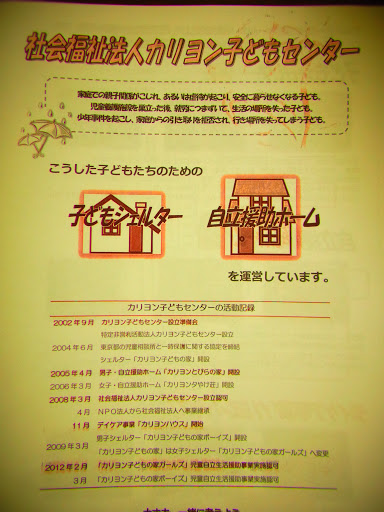 社会福祉法人カリヨン子どもセンター
家庭での親子関係がこじれ、あるいは虐待が起こり、安全に暮らせなくなる子ども。
児童養護施設を巣立った後、就労につまずいて、生活の場所を失った子ども。
少年事件を起こし、家庭からの引き取りを拒否され、行き場所を失ってしまう子ども。
こうした子どもたちのための
子どもシェルター 自立援助ホーム
を運営しています。
カリヨン子どもセンターの活動記録
2002年9月 カリヨン子どもセンター設立準備会
特定非営利活動法人カリヨン子どもセンター設立
2004年6月 東京都の児童相談所と一時保護に関する協定を締結
シェルター「カリヨン子どもの家」開設
2005年4月 男子・自立援助ホーム「カリヨンとびらの家」開設
2006年3月 女子・自立援助ホーム「カリヨン夕やけ荘」開設
2008年3月 社会福祉法人カリヨン子どもセンター設立認可
4月 NPO法人から社会福祉法人へ事業継承
11月 デイケア事業「カリヨンハウス」開始
男子シェルター「カリヨン子どもの家ボーイズ」開設
2009年3月
「カリヨン子どもの家」は女子シェルター「カリヨン子どもの家ガールズ」へ変更
2012年2月 「カリヨン子どもの家ガールズ」児童自立生活援助事業実施認可
3月 「カリヨン子どもの家ボーイズ」児童自立生活援助事業実施認可